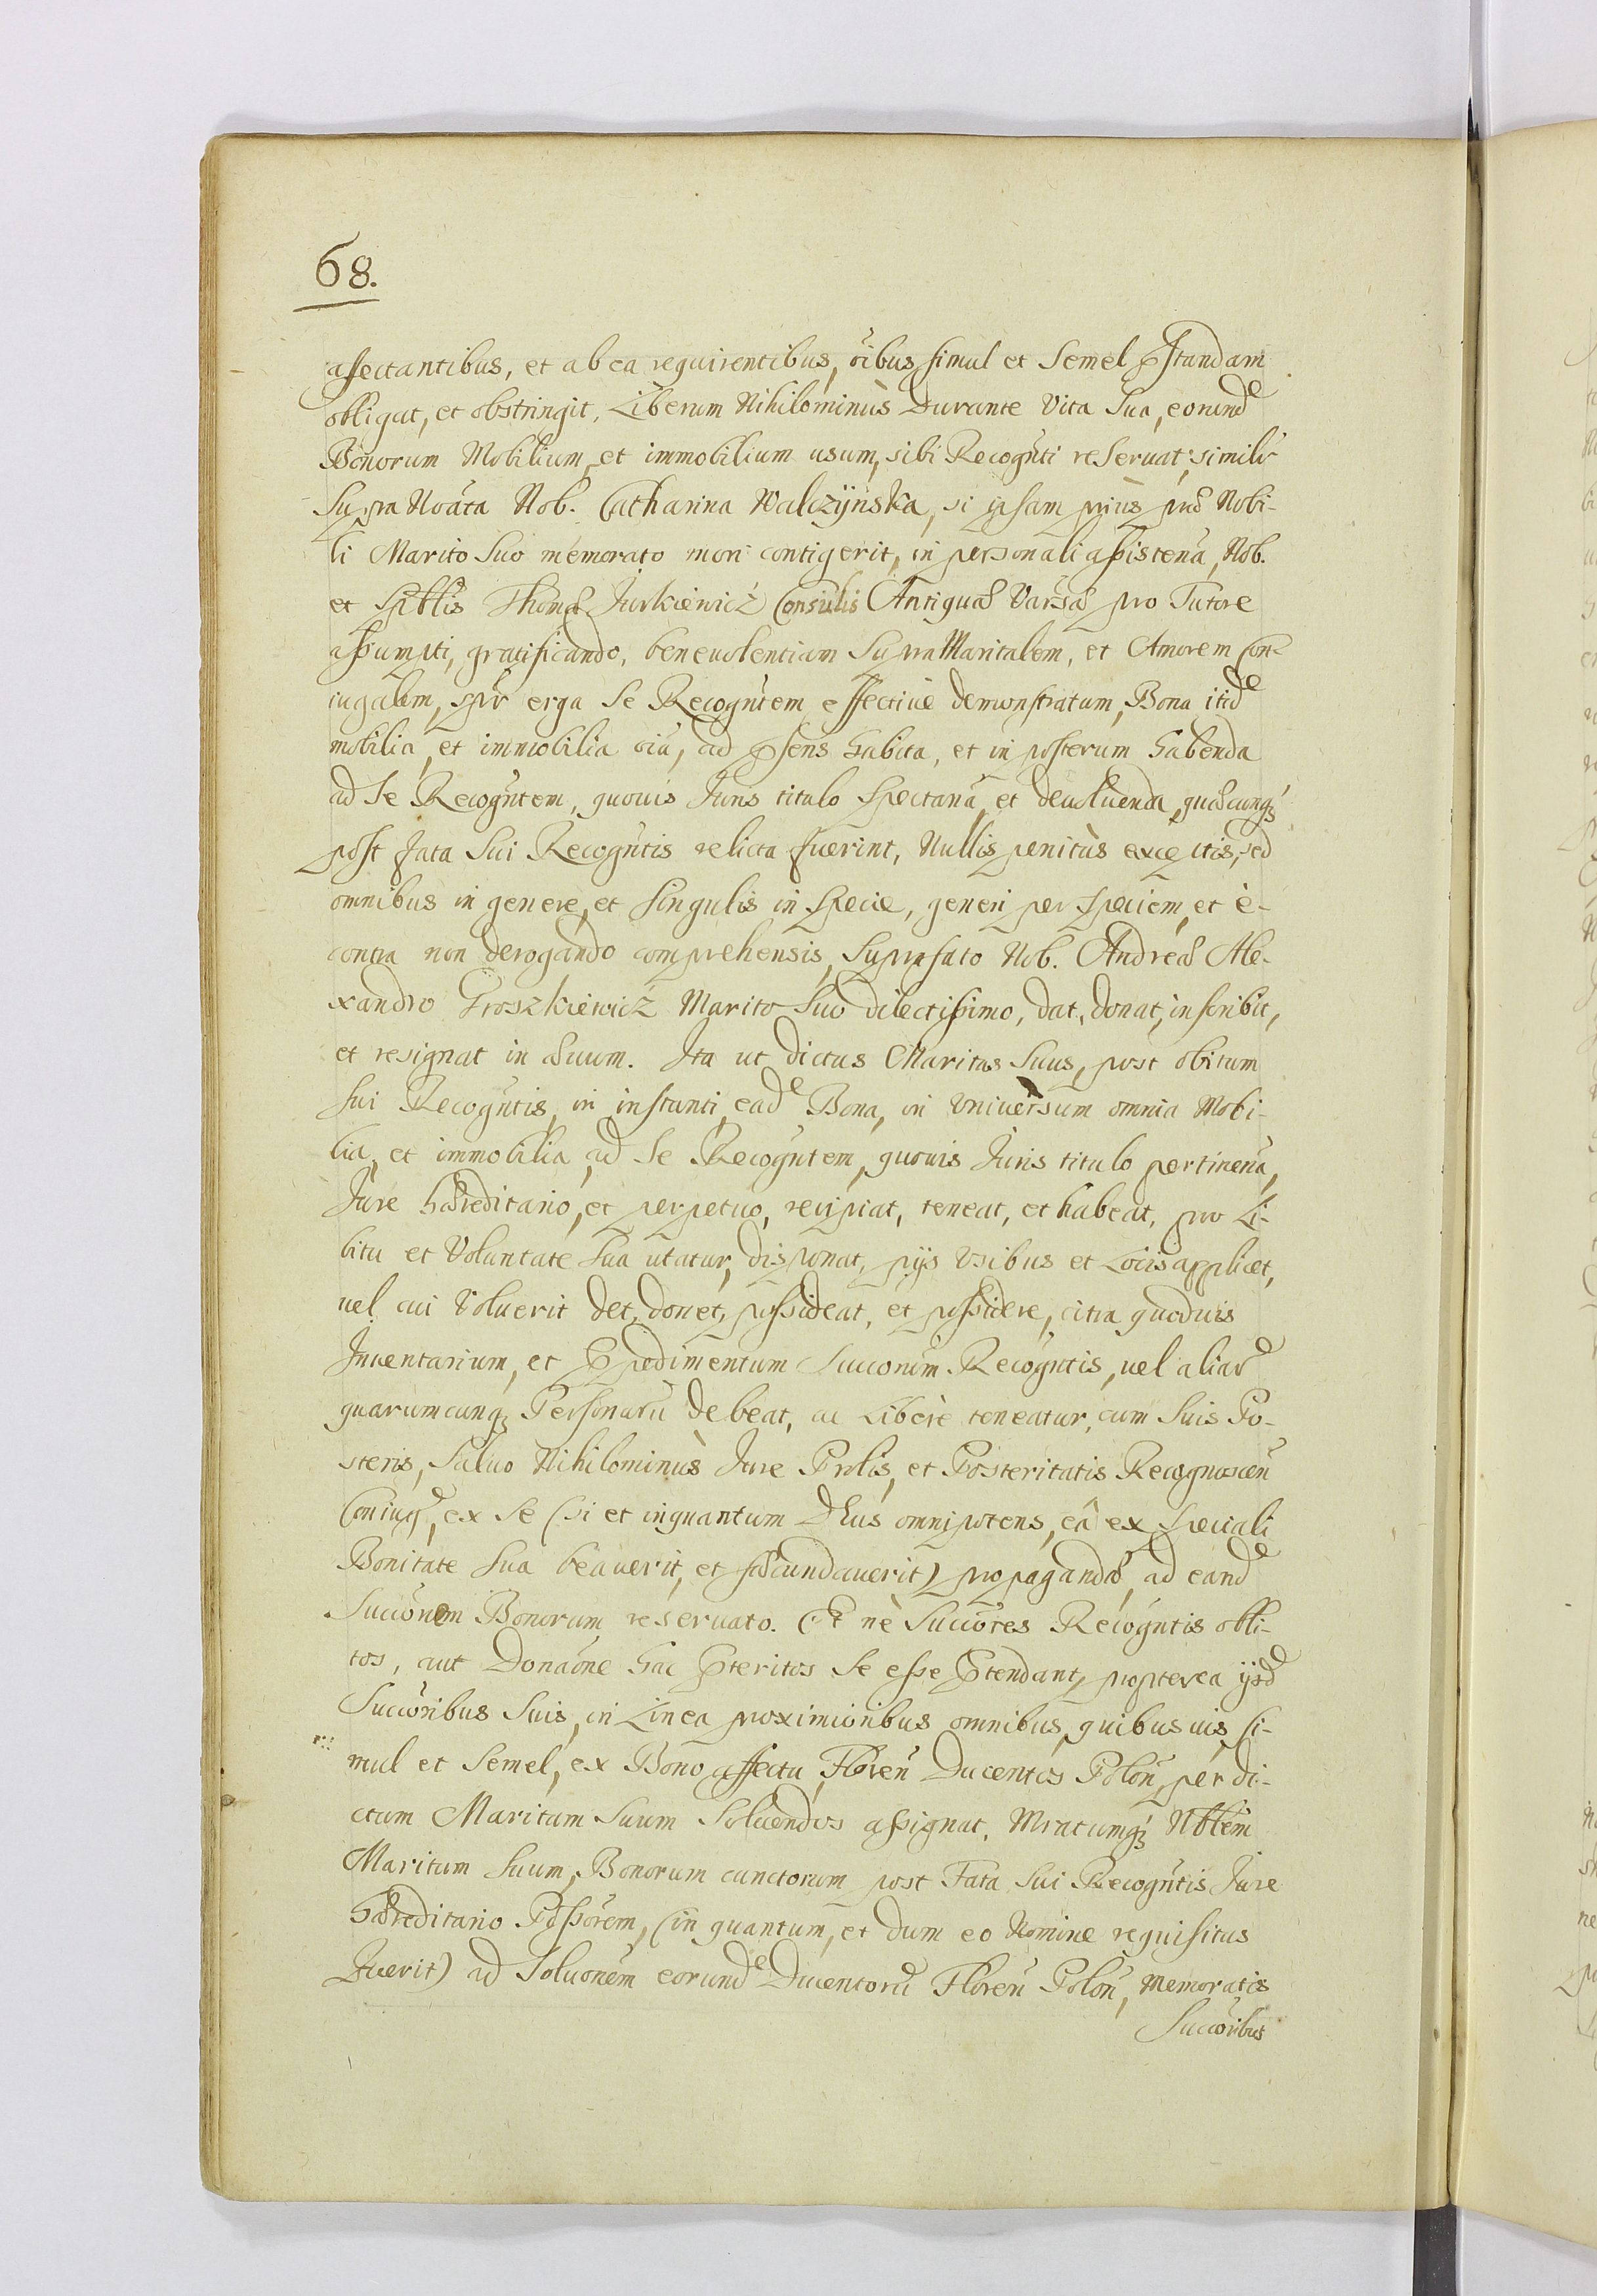 68.
affectantibus, et ab ea requirentibus, oĩbus simul et Semel p̃standam
obligat, et obstringit, Liberum Nihilominùs Durante Vita Sua, eorund̃
Bonorum Mobilium, et immobilium usum, sibi Recogñti reservat; similĩr
Supra Noãta Nob. Catharina Walczÿnska, si ipsam priùs præ Nobi-
li Marito Suo memorato mori contigerit, in personali assistenã, Nob.
et Sp̃blis Thomæ Jurkiewicz Consulis Antiquæ Varsaæ pro Tutore
assumpti, gratificando, benevolentiam Supra Maritalem, et Amorem Con-
iugalem, sp̃r erga Se Recogñtem effectiuè demonstratum, Bona itid̃
mobilia, et immobilia oĩa, ad p̃sens habita, et in posterum habenda
ad Se Recogñtem, quouis Juris titulo spectanã, et devoluenda, quæcunq̃
post fata Sui Recogñtis relicta fuerint, Nullis penitùs exceptis, sed
omnibus in genere, et singulis in specie, generi per speciem, et è-
contra non derogando comprehensis, Suprafato Nob. Andreæ Ale-
xandro Groszkiewicz Marito Suo dilectissimo, dat, donat, inscribit,
et resignat in æuum. Ita ut dictus Maritus Suus, post obitum
Sui Recogñtis, in instanti ead̃ Bona, in Vniuersum omnia Mobi-
lia, et immobilia ad Se Recogñtem, quouis Juris titulo pertinenã,
Jure hæreditario, et perpetuo, recipiat, teneat, et habeat, pro Li-
bitu et Voluntate Sua utatur, disponat, pijs Vsibus et Locis applicet,
uel cui Voluerit det, donet, possideat, et possidere, citra quoduis
Inuentarium, et Impedimentum Succorum̃ Recogñtis, uel aliar̃
quarumcunq̃ Personarũ debeat, ac Liberè teneatur, cum Suis Po-
steris, Saluo Nihilominùs Jure Prolis, et Posteritatis Recognoscen̄
Coniug̃, ex Se (si et inquantum D̃eus omnipotens, eâ ex Speciali
Bonitate Sua beauerit, et fæcundauerit) propagandæ, ad eand̃
Succonem Bonorum reseruato. Et nè Succores Recogñtis obli-
tos, aut Donaõne hac p̃teritos Se esse p̃tendant, propterea ijsd̃
Succoribus Suis, in Linea proximioribus omnibus, quibusuis Si-
mul et Semel, ex Bono affectu, Floren̄ Ducentos Polon̄, per di-
ctum Maritum Suum Soluendos assignat. Mratumq̃ Nblem
Maritum Suum, Bonorum cunctorum post Fata Sui Recogñtis Jure
hæreditario Possorem, (in quantum, et dum eo Nomine requisitus
fuerit) ad Soluonem eorund̃ Ducentorũ Floren̄ Polon̄, memoratis
Succoribus